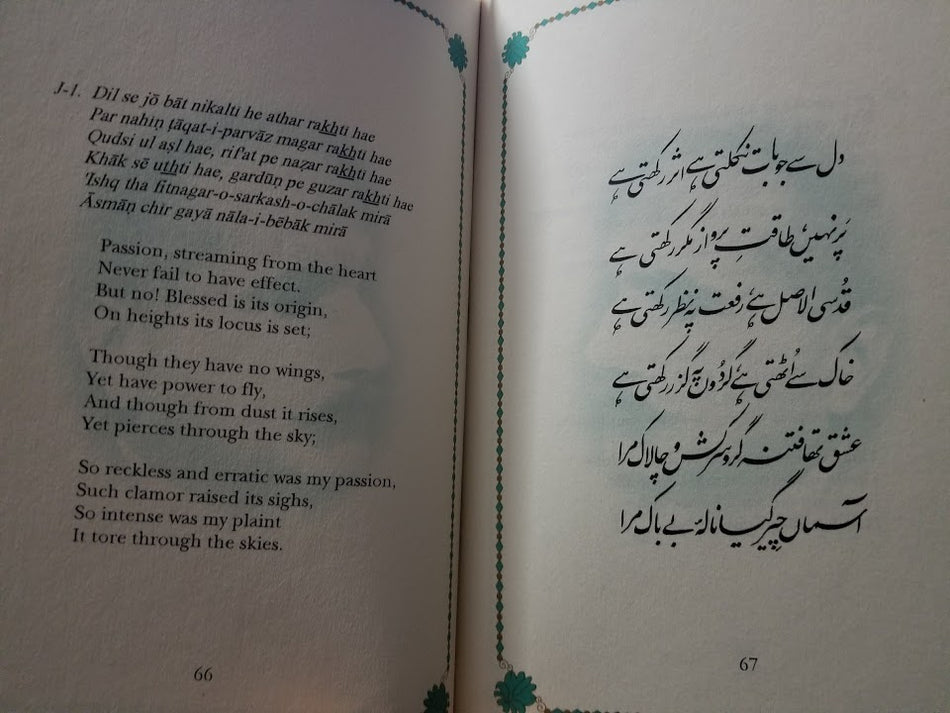 J-1. Dil se jō bāt nikalti he athar rakhti hae
Par nahiṇ ṭāqat-i-parvāz magar rakhti hae
Qudsi ul aṣl hae, rif'at pe naẓar rakhti hae
Khāk sē uthti hae, gardūṇ pe guzar rakhti hae
'Ishq tha fitnagar-o-sarkash-o-chālak mirā
Āsmāṇ chir gayā nāla-i-bēbāk mirā
Passion, streaming from the heart
Never fail to have effect.
But no! Blessed is its origin,
On heights its locus is set;
Though they have no wings,
Yet have power to fly,
And though from dust it rises,
Yet pierces through the sky;
So reckless and erratic was my passion,
Such clamor raised its sighs,
So intense was my plaint
It tore through the skies.
66
دل سے جو بات نکلتی ہے اثر رکھتی ہے
پَر نہیں، طاقتِ پرواز مگر رکھتی ہے
قُدسی الاصل ہے، رفعت پہ نظر رکھتی ہے
خاک سے اُٹھتی ہے، گردُوں پہ گزر رکھتی ہے
عشق تھا فتنہ گر و سرکش و چالاک مرا
آسماں چِیر گیا نالۂ بے باک مرا
67